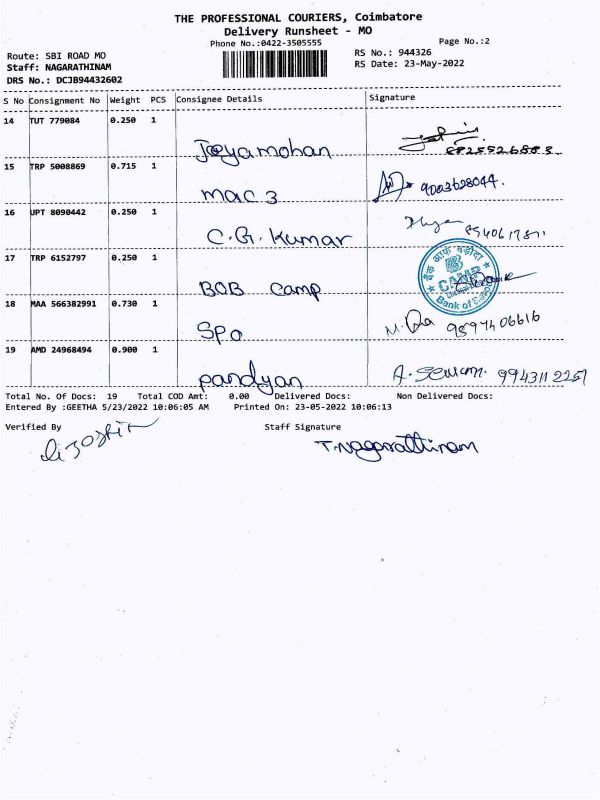 THE PROFESSIONAL COURIERS, Coimbatore
Delivery Runsheet - MO
Phone No.:0422-3505555
Page No.:2
Route: SBI ROAD MO
RS No.: 944326
Staff: NAGARATHINAM
RS Date: 23-May-2022
DRS No.: DCJB94432602
S No Consignment No Weight PCS Consignee Details Signature
14 TUT 779084 0.250 1
Jeyamohan
15 TRP 5008869 0.715 1
mac 3 9003628044.
16 UPT 8090442 0.250 1
C.G. Kumar
17 TRP 6152797 0.250 1
BOB Camp
बैंक ऑफ़ बड़ौदा
Bank of Baroda
18 MAA 566382991 0.730 1
SPO
19 AMD 24968494 0.900 1
pandyan
Total No. Of Docs: 19 Total COD Amt: 0.00 Delivered Docs: Non Delivered Docs:
Entered By :GEETHA 5/23/2022 10:06:05 AM Printed On: 23-05-2022 10:06:13
Verified By Staff Signature
T.Nagarathinam